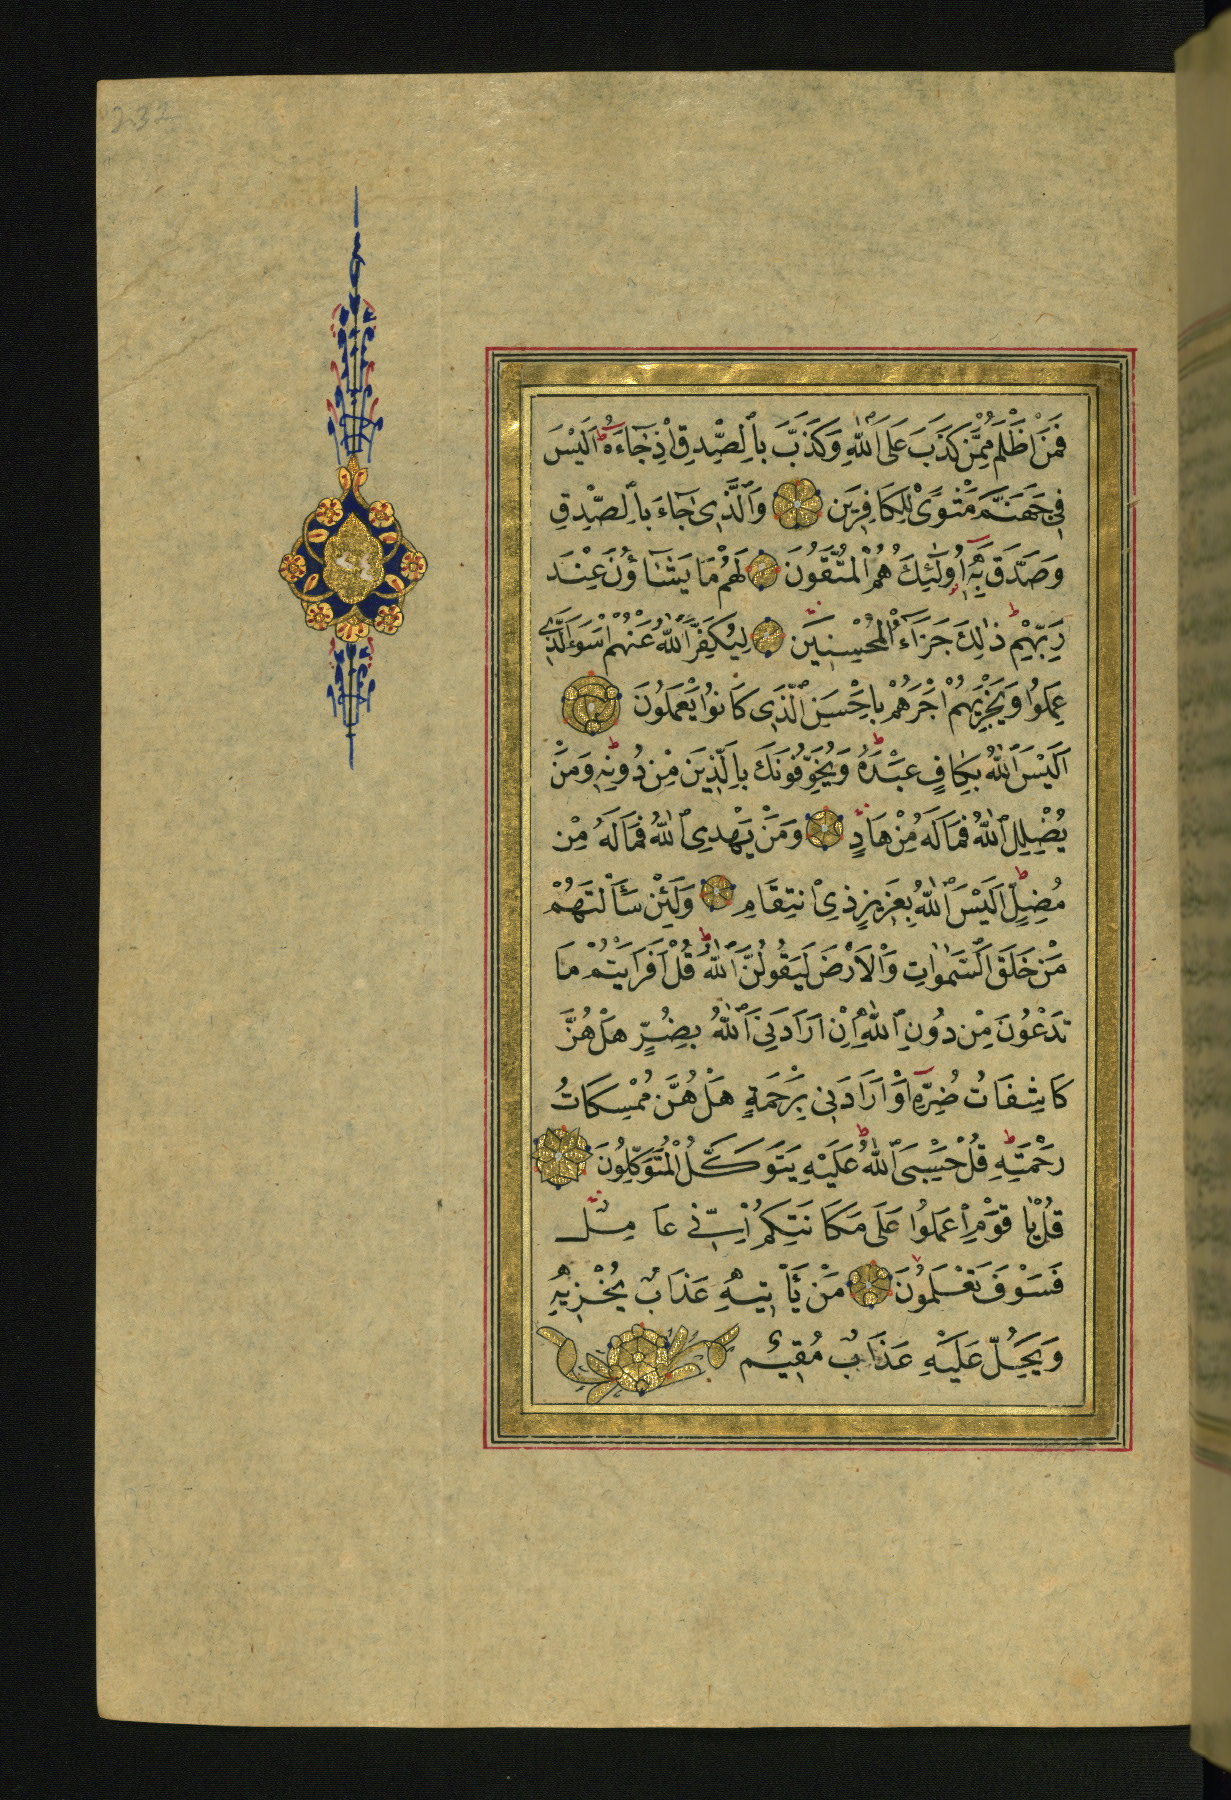 232
٢٤
فَمَنْ اَظْلَمُ مِمَّنْ كَذَبَ عَلَى اللّٰهِ وَكَذَّبَ بِالصِّدْقِ اِذْ جَٓاءَهُ ط اَلَيْسَ
فِي جَهَنَّمَ مَثْوًى لِلْكَافِرِينَ وَالَّذِي جَٓاءَ بِالصِّدْقِ
وَصَدَّقَ بِهِٓ اُولٰٓئِكَ هُمُ الْمُتَّقُونَ لَهُمْ مَا يَشَٓاؤُنَ عِنْدَ
رَبِّهِمْ ط ذٰلِكَ جَزَٓاءُ الْمُحْسِنِينَ لِيُكَفِّرَ اللّٰهُ عَنْهُمْ اَسْوَءَ الَّذِي
عَمِلُوا وَيَجْزِيَهُمْ اَجْرَهُمْ بِاَحْسَنِ الَّذِي كَانُوا يَعْمَلُونَ
اَلَيْسَ اللّٰهُ بِكَافٍ عَبْدَهُ ط وَيُخَوِّفُونَكَ بِالَّذِينَ مِنْ دُونِهِ ط وَمَنْ
يُضْلِلِ اللّٰهُ فَمَا لَهُ مِنْ هَادٍ وَمَنْ يَهْدِي اللّٰهُ فَمَا لَهُ مِنْ
مُضِلٍّ ط اَلَيْسَ اللّٰهُ بِعَزِيزٍ ذِي انْتِقَامٍ وَلَئِنْ سَاَلْتَهُمْ
مَنْ خَلَقَ السَّمٰوَاتِ وَالْاَرْضَ لَيَقُولُنَّ اللّٰهُ ط قُلْ اَفَرَاَيْتُمْ مَا
تَدْعُونَ مِنْ دُونِ اللّٰهِ اِنْ اَرَادَنِيَ اللّٰهُ بِضُرٍّ هَلْ هُنَّ
كَاشِفَاتُ ضُرِّهِٓ اَوْ اَرَادَنِي بِرَحْمَةٍ هَلْ هُنَّ مُمْسِكَاتُ
رَحْمَتِهِ ط قُلْ حَسْبِيَ اللّٰهُ ط عَلَيْهِ يَتَوَكَّلُ الْمُتَوَكِّلُونَ
قُلْ يَا قَوْمِ اعْمَلُوا عَلَى مَكَانَتِكُمْ اِنِّي عَامِلٌ
فَسَوْفَ تَعْلَمُونَ مَنْ يَأْتِيهِ عَذَابٌ يُخْزِيهِ
وَيَحِلُّ عَلَيْهِ عَذَابٌ مُقِيمٌ